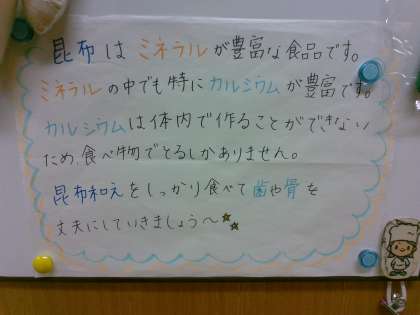 昆布はミネラルが豊富な食品です。
ミネラルの中でも特にカルシウムが豊富です。
カルシウムは体内で作ることができない
ため、食べ物でとるしかありません。
昆布和えをしっかり食べて歯や骨を
丈夫にしていきましょう〜